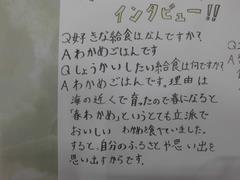 インタビュー!!
Q好きな給食はなんですか?
Aわかめごはんです
Qしょうかいしたい給食は何ですか?
Aわかめごはんです。理由は
海の近くで育ったので春になると
「春わかめ」というとても立派で
おいしい わかめ喰べていました。
すると、自分のふるさとや思い出を
思い出すからです。